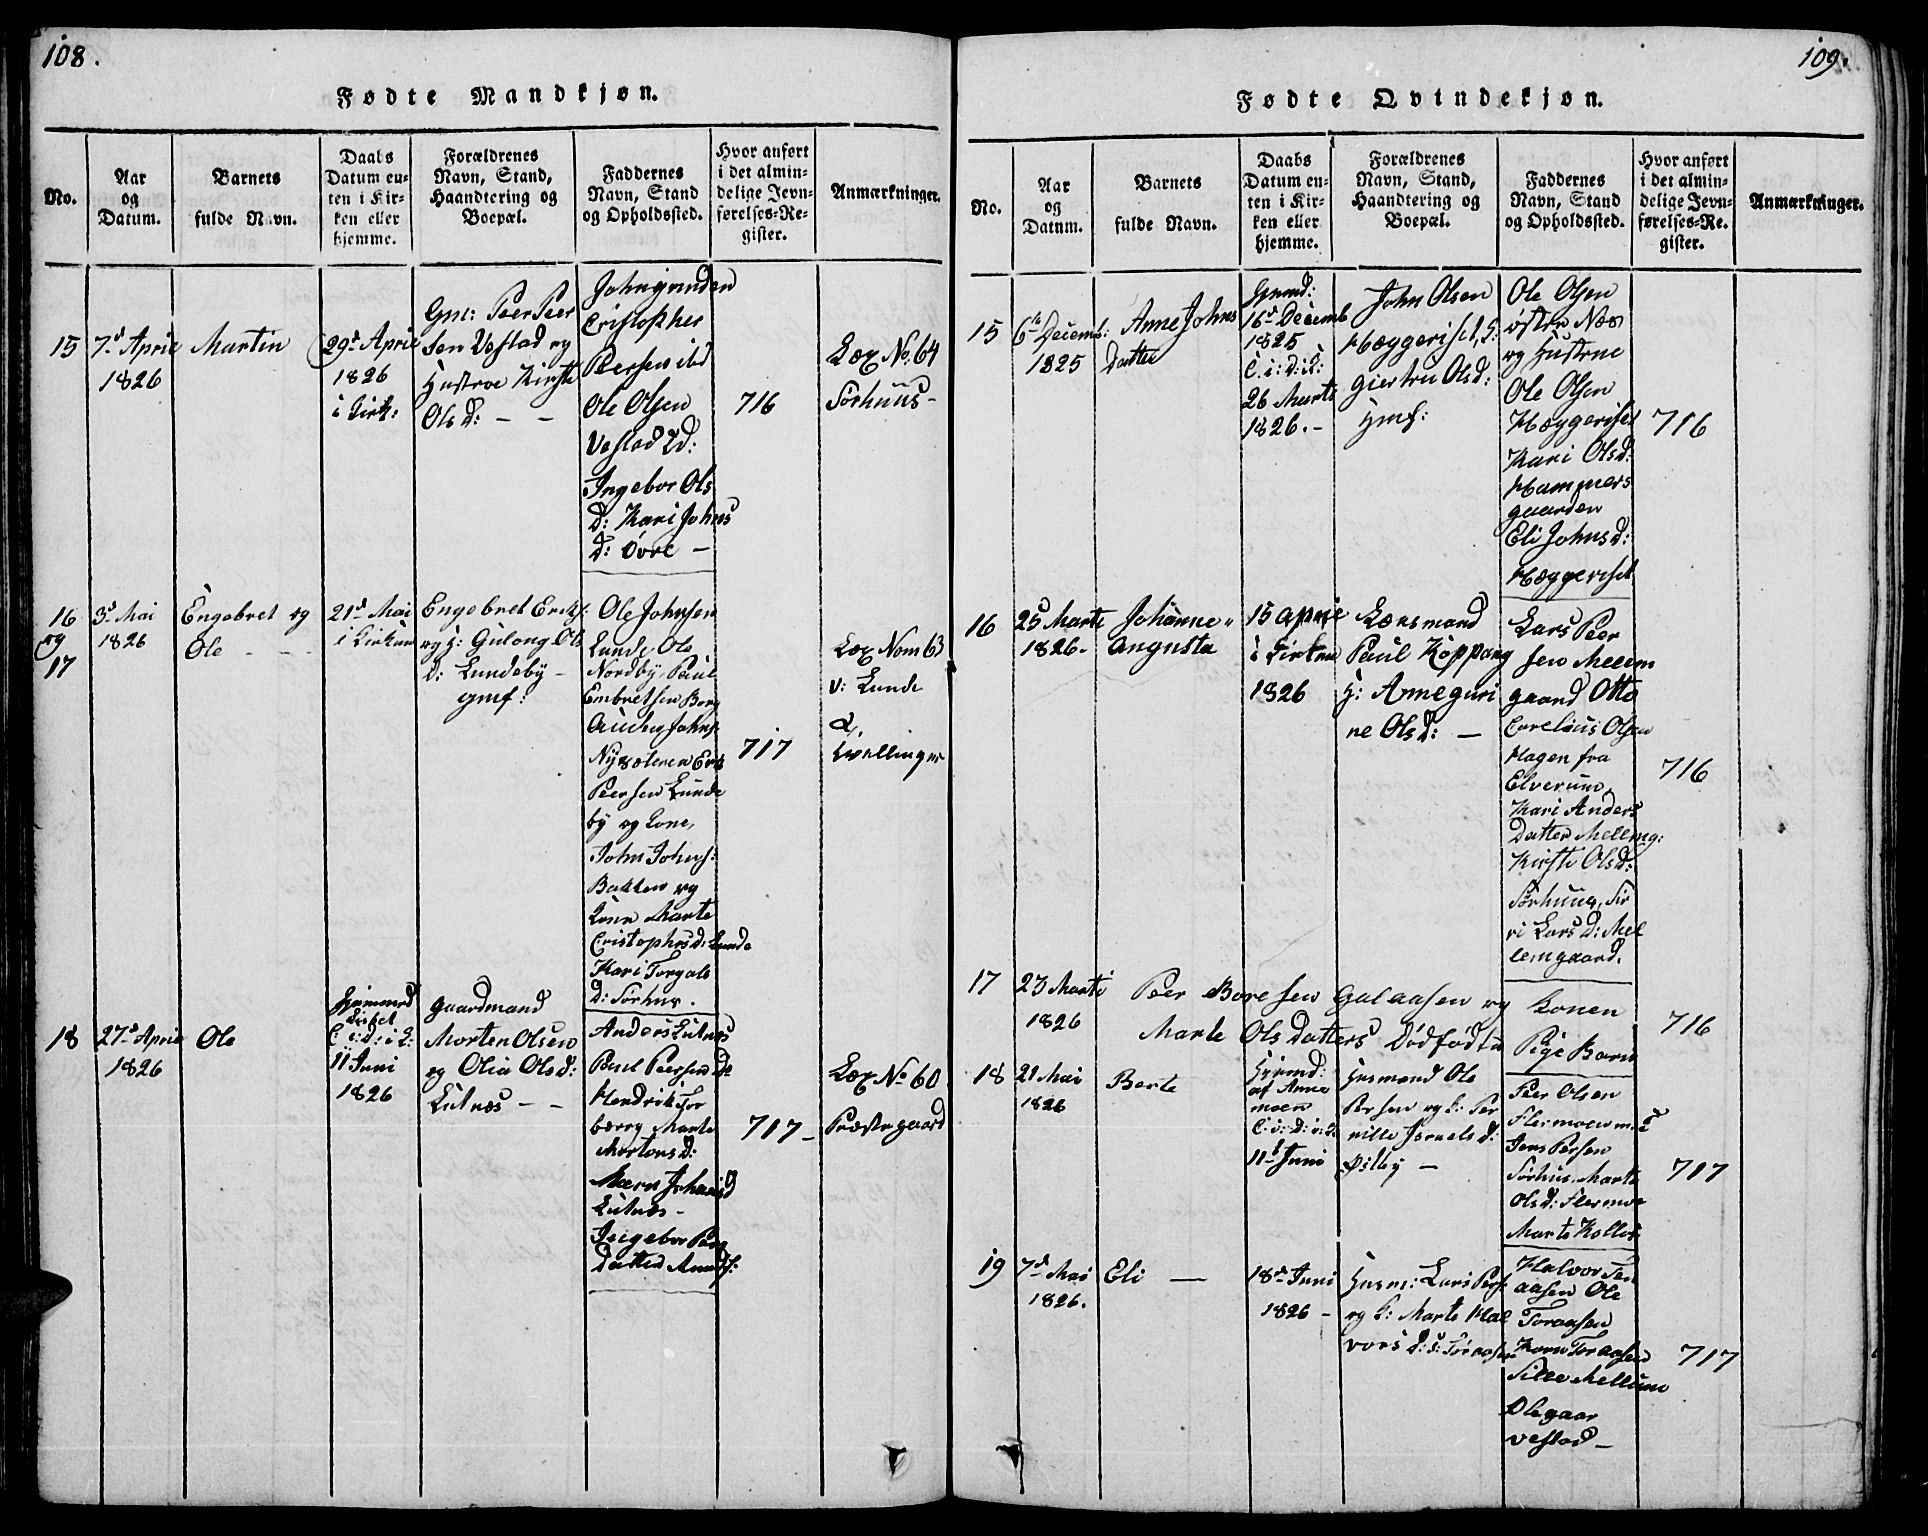 108.
Fødte Mandkjøn.
No.
Aar
og
Datum.
Barnets
fulde Navn.
Daabs
Datum en-
ten i Kir-
ken eller
hjemme.
Forældrenes
Navn, Stand,
Haandtering og
Boepæl.
Faddernes
Navn, Stand
og Opholdssted.
Hvor anført
i det almin-
delige Jevn-
førelses-Re-
gister.
Anmærkninger.
15
7d April
1826
Martin
29d April
1826
i Kirk:
Gm: Peer Peer
sen Vestad og
Hustroe Kirsti
Ols D: - -
John
Cristopher
Persen ibd
Ole Olsen
Vestad
Ingebor Ols
D: Kari Johns
D: Øvre -
716
Læg No. 64
Sørhuus-
16
og
17
3d Mai
1826
Engebret og
Ole - - -
21d Mai
i Kirken
Engebret Eriks:
og H: Gulong Ols
D: Lundeby -
gmf:
Ole Johnsen
Lunde, Ole
Nordby, Paul
Embretsen Berg
Johns:
Nysæteren Erik
Peersen Lunde
by og Kone,
John Johns:
Bakken og
Kone Marte
Cristophs D: Lunde
Kari Torgals
D: Sørhus.
717
Læg Nom 63
v: Lunde
Qvellinger
18
27d April
1826
Ole
Hjemmed
C: i: D: i K:
11 Juni
1826
Gaardmand
Morten Olsen
og Olia Ols D:
Lutnes - -
Anders Lutnes
Paul Peersen do
Hendrik Tor
berg Marte
Mortens D:
Maren Johans D
Lutnes -
Ingebor Peers
Datter
717-
Læg No 60
Præstegaard
109.
Fødte Qvindekjøn.
No.
Aar
og
Datum.
Barnets
fulde Navn.
Daabs
Datum en-
ten i Kir-
ken eller
hjemme.
Forældrenes
Navn, Stand,
Haandtering og
Boepæl.
Faddernes
Navn, Stand
og Opholdssted.
Hvor anført
i det almin-
delige Jevn-
førelses-Re-
gister.
Anmærkninger.
15
6te Decemb:
1825
Anne Johns
Datter
Hjemd:
16d Decemb
1825
C: i: D: i K:
26 Marti
1826. -
John Olsen
Heggeriset, H:
Giertru Ols D:
Hmf:
Ole Olsen
østre Næs
og Hustrue
Ole Olsen
Heggeriset
Kari Ols D:
Hammers
gaarden
Eli Johns D:
Heggeriset
716
16
25 Marti
1826-
Johanne
Augusta
15 April
i Kirken
1826
Lensmand
Paul Koppang
H: Anne Guri
ne Ols D: -
Lars Peer
sen Mellem
gaard Otto
Cornelius Olsen
Hagen fra
Elverum,
Kari Anders
Datter Mellemg:
Kirsti Ols D:
Sørhuus, Sir
ri Lars D: Mel
lemgaard.
716
17
23 Marti
1826
Peer Boresen Galaasen og Konen
Marte Ols Datters Dødfødte Pige Barn
716
18
21 Mai
1826
Berte
Hjemd:
af Anne
moen
C: i: D: i K:
11d Juni
Husmand Ole
Persen og K: Per
nille Israels D:
Østby -
Peer Olsen
Flermoen
Jens Persen
Sørhus, Marte
Ols D: Flermoe
Marte Kolles
717
19
7d Mai
1826.
Eli -
18d Juni
1826 -
Husm: Lars Pers:
og K: Marte Hal
vors D: S: Toraasen
Halvor Tor
aasen Ole
Toraasen
Karen Toraasen
Mellem
Olegaar
Vestad -
717